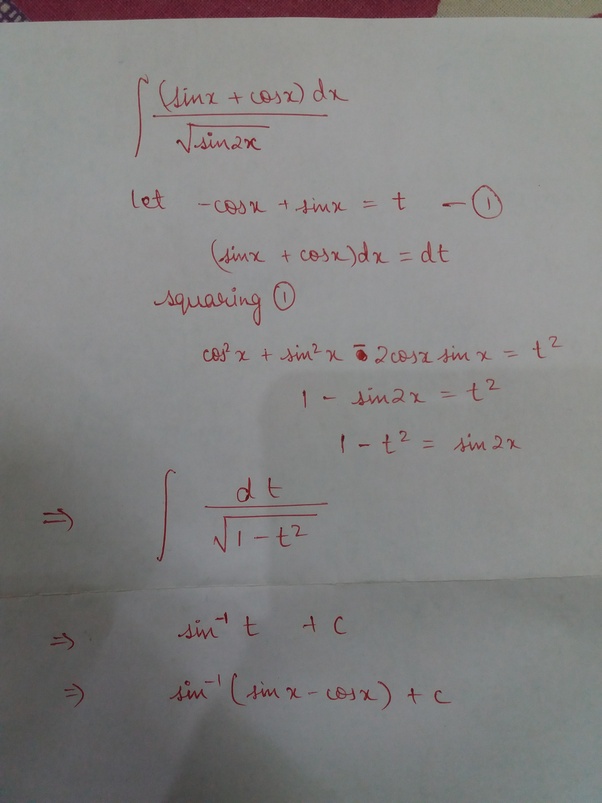 ∫ (sinx + cosx) dx / √sin2x
Let -cosx + sinx = t - ①
(sinx + cosx)dx = dt
squaring ①
cos²x + sin²x - 2cosx sinx = t²
1 - sin2x = t²
1 - t² = sin2x
⇒ ∫ dt / √1-t²
⇒ sin⁻¹ t + c
⇒ sin⁻¹(sinx-cosx) + c